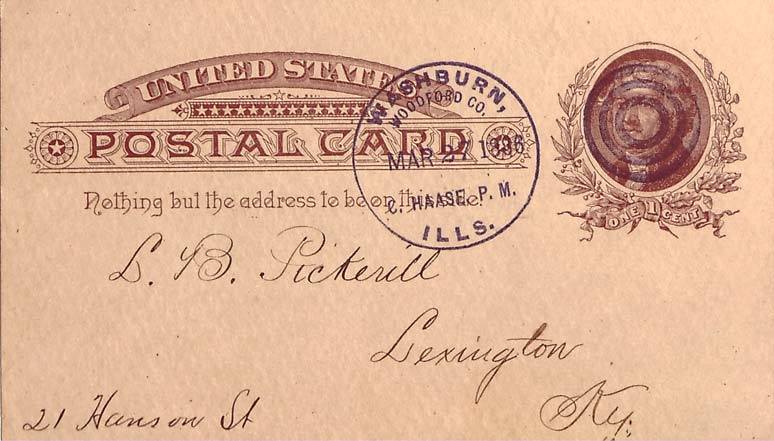 UNITED STATES
POSTAL CARD
Nothing but the address to be on this side.
ONE 1 CENT
WASHBURN,
WOODFORD CO.
MAR 27 1886
C. HAASE, P. M.
ILLS.
L. B. Pickerill
Lexington
Ky.
21 Hanson St